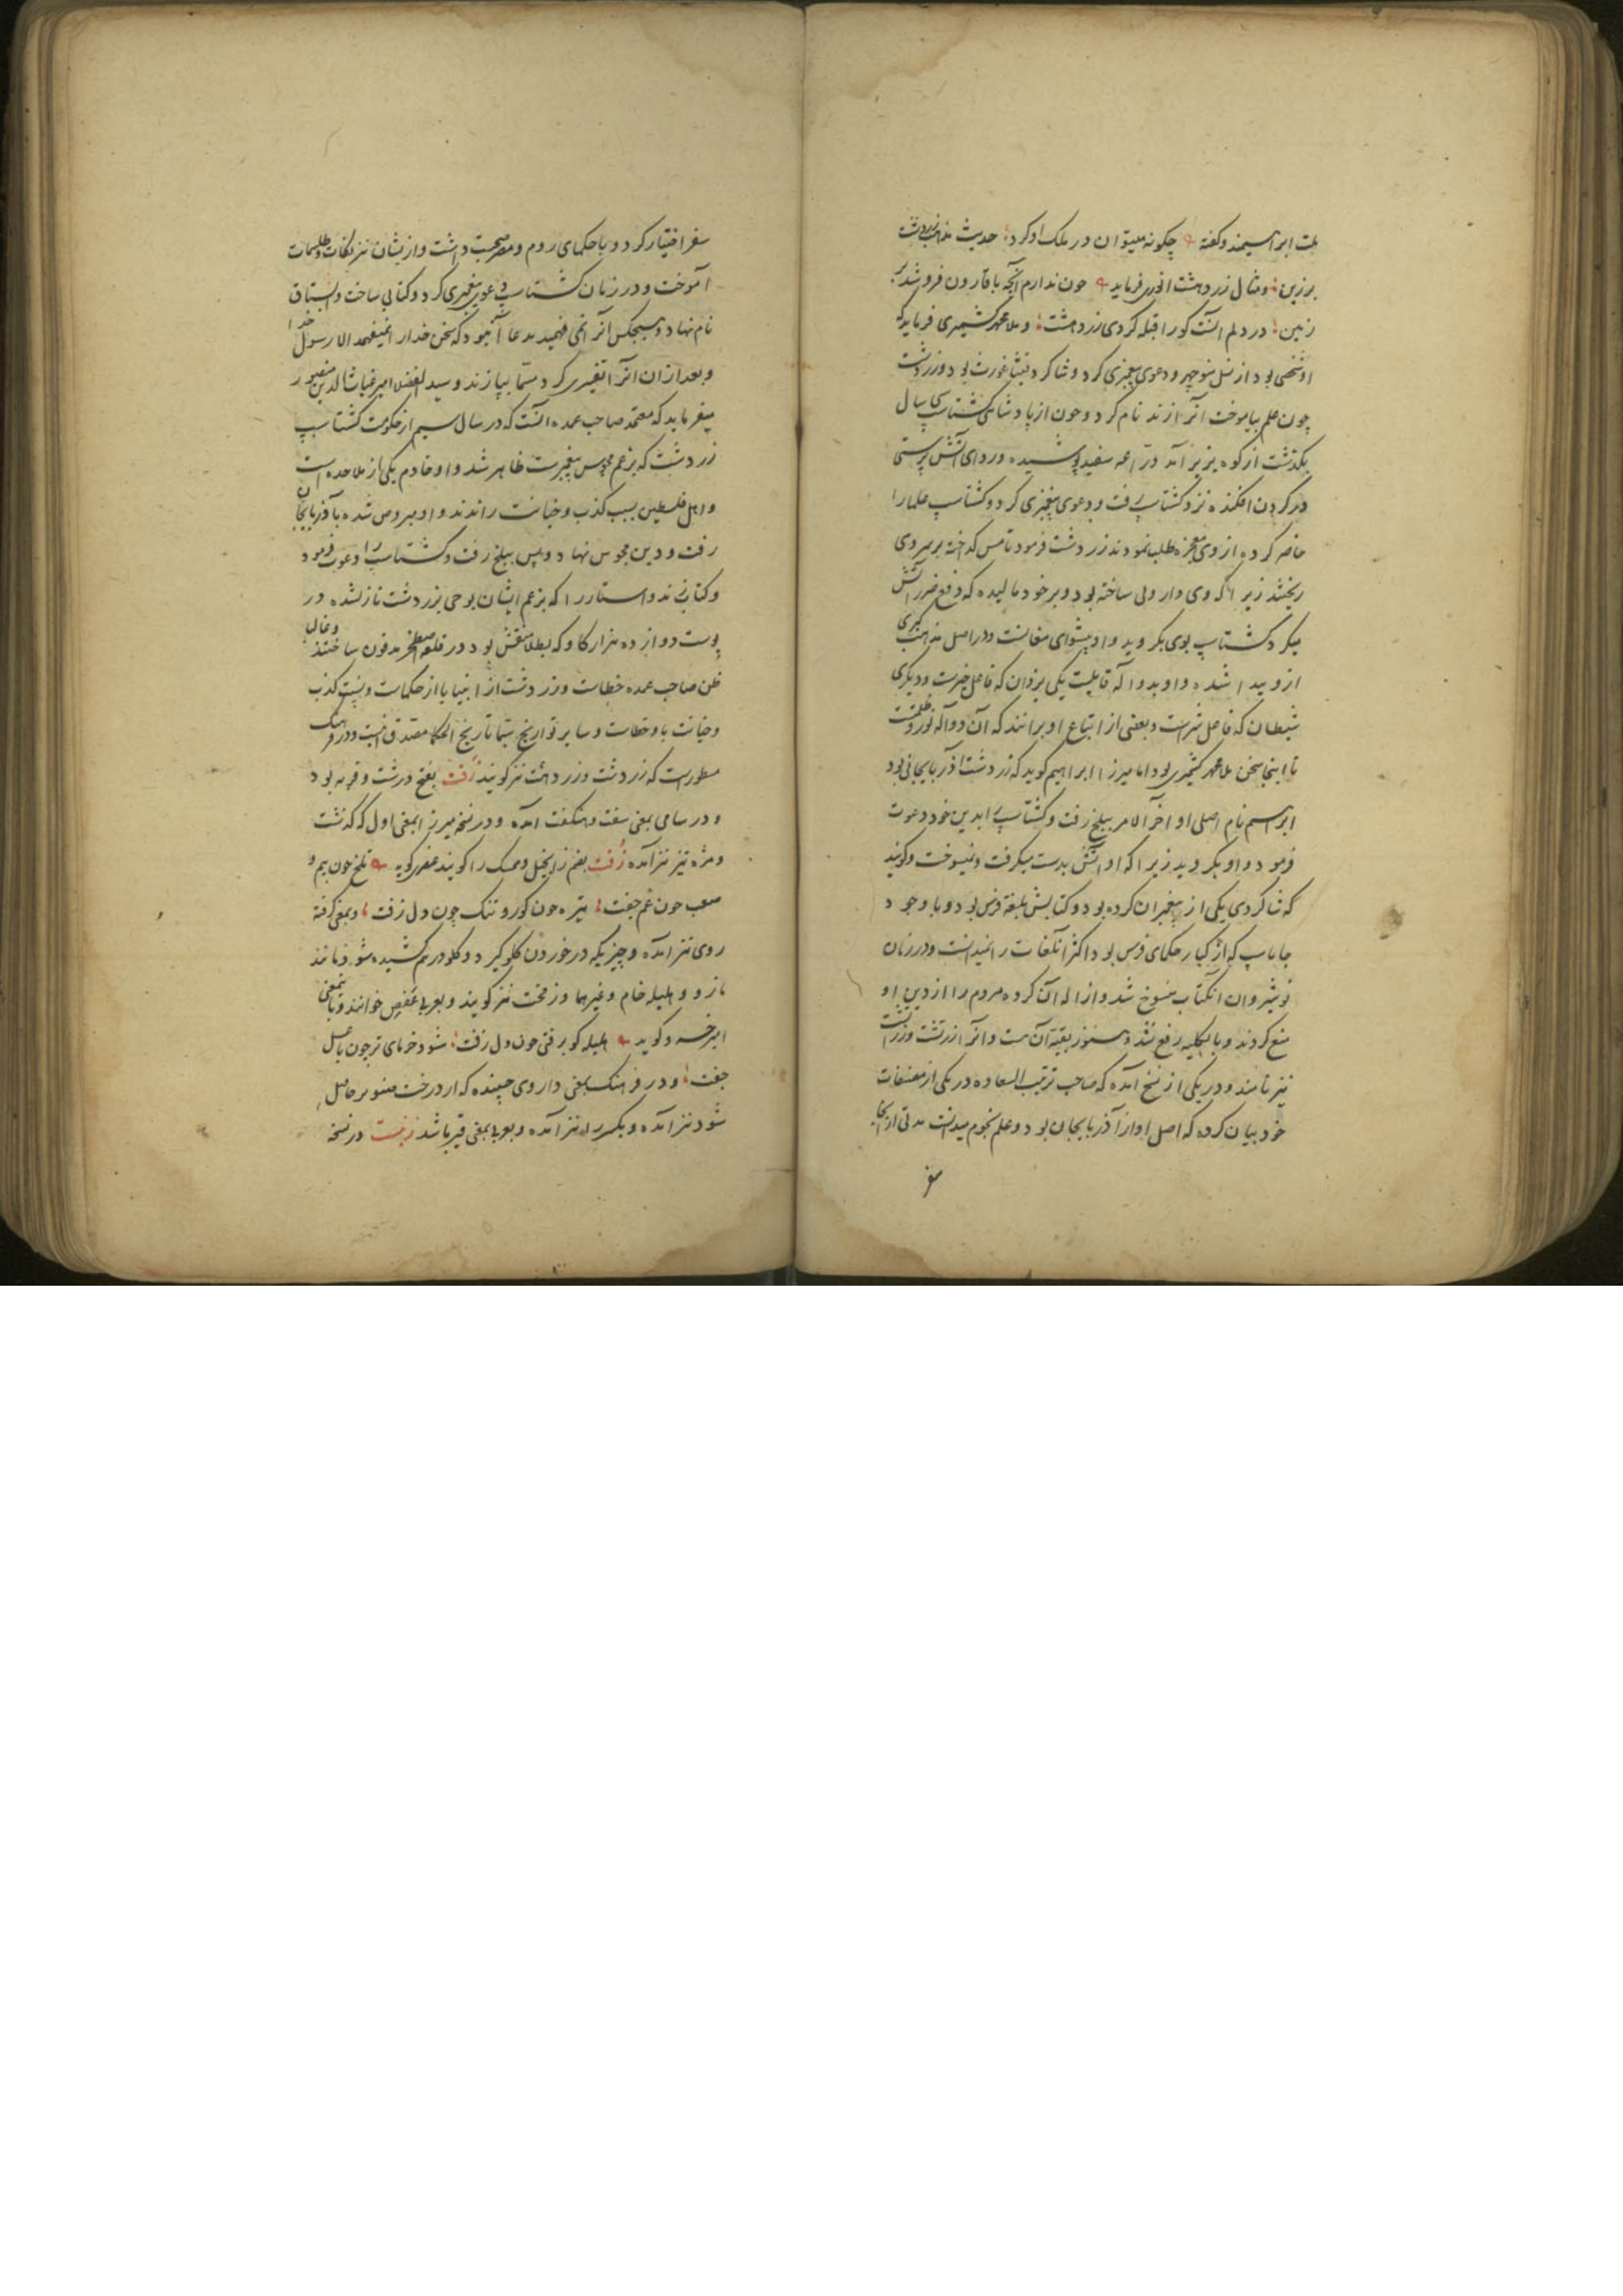 ملت ابراهیمند و گفته چگونه میتوان در ملک او کرد حدیث مذهب زردشت
برزین و مثال زردهشت انوری فرماید چون ندارم آنچه با قارون فرو شد بر
زمین در دلم آنست کورا قبله کردی زردهشت و ملا محمد کشمیری فرماید که
او شخصی بود از نسل منوچهر و دعوی پیغمبری کرد و شاگرد فیثاغورث بود و زردشت
چون علم بیاموخت آنرا زند نام کرد و چون از پادشاهی گشتاسب سی سال
بگذشت از کوه بزیر آمد دراعه سفید پوشیده و ردای آتش پرستی
در گردن افکنده نزد گشتاسب رفت و دعوی پیغمبری کرد و گشتاسب علما را
حاضر کرده از وی معجزه طلب نمودند زردشت فرمود تا مس گداخته بر سر وی
ریختند زیرا که وی داروئی ساخته بود و بر خود مالیده که دفع ضرر آتش
میکرد گشتاسب بوی بگروید و او پیشوای مغانست و در اصل مذهب گبری
ازو پیدا شده و او بدو اله قایلست یکی یزدان که فاعل خیرست و دیگری
شیطان که فاعل شرست و بعضی از اتباع او برانند که آن دو اله نور و ظلمتست
تا اینجا سخن ملا محمد کشمیری بود اما میرزا ابراهیم گوید که زردشت آذربایجانی بود
ابراهیم نام اصلی او آخر الامر ببلخ رفت و گشتاسب را بدین خود دعوت
فرمود و او بگروید زیرا که او آتش بدست میگرفت و نمیسوخت و گویند
که شاگردی یکی از پیغمبران کرده بود و کتابش بلغة فرس بود و با وجود
جاماسب که از کبار حکمای فرس بود اکثر آن لغات را نمیدانست و در زمان
نوشیروان آن کتاب منسوخ شد و ازاله آن کرده مردم را از دین او
منع کردند و بالکلیه رفع نشد و هنوز بقیة آن هست و آنرا زرتشت و زردشت
نیز نامند و در یکی از نسخ آمده که صاحب ترتیب السعاده در یکی از مصنفات
خود بیان کرده که اصل او از آذربایجان بود و علم نجوم میدانست مدتی از آنجا
سفر
سفر اختیار کرد و با حکمای روم و مصر صحبت داشت و ازیشان نیرنگات و طلسمات
آموخت و در زمان گشتاسب دعوی پیغمبری کرد و کتابی ساخت و ابستاق
نام نهاد و هیچکس آنرا نمی فهمید مدعا آن بود که سخن خدا را نمیفهمد الا رسول خدا
و بعد از ان آنرا تفسیری کرد مسمی بپازند و سید الفضلا امیر غیاث الدین منصور
میفرماید که معتقد صاحب عمده آنست که در سال سیم از حکومت گشتاسب
زردشت که بزعم مجوس پیغمبرست ظاهر شد و او خادم یکی از ملاحده است
و اهل فلسطین بسبب کذب و خیانت راندند و او مبروص شده بآذربایجان
رفت و دین مجوس نهاد و پس ببلخ رفت و گشتاسب را دعوت فرمود
و کتاب زند و استا را که بزعم ایشان بوحی بزردشت نازل شده در
پوست دوازده هزار گاو که بطلا منقش بود در قلعه اصطخر مدفون ساختند و غالبا
ظن صاحب عمده خطاست و زردشت از انبیا یا از حکماست و نسبت کذب
و خیانت باو خطاست و سایر تواریخ سیما تاریخ الحکما مصدق آنست و در فرهنگ
مسطورست که زردشت و زردهشت نیز گویند زفت بفتح درشت و فربه بود
و در سامی بمعنی سفت و هنگفت آمده و در نسخه میرزا بمعنی اول که گذشت
و مزه تیز نیز آمده زفت بضم زا بخیل و ممسک را گویند عنصری گوید تلخ چون بیم و
صعب چون غم جفت تیره چون گور و تنگ چون دل زفت و بمعنی گرفته
روی نیز آمده و چیزیکه در خوردن گلو گیرد و گلو درهم کشیده شود مانند
مازو و هلیله خام و غیرهما و زمخت نیز گویند و بعربی عفص خوانند و باین معنی
امیر خسرو گوید هلیله کو برفتی چون دل زفت شود خرمای تر چون با عسل
جفت و در فرهنگ بمعنی داروی چسبنده که از درخت صنوبر حاصل
شود نیز آمده و بکسر زا نیز آمده و بعربی بمعنی قیر باشد زنبت در نسخه